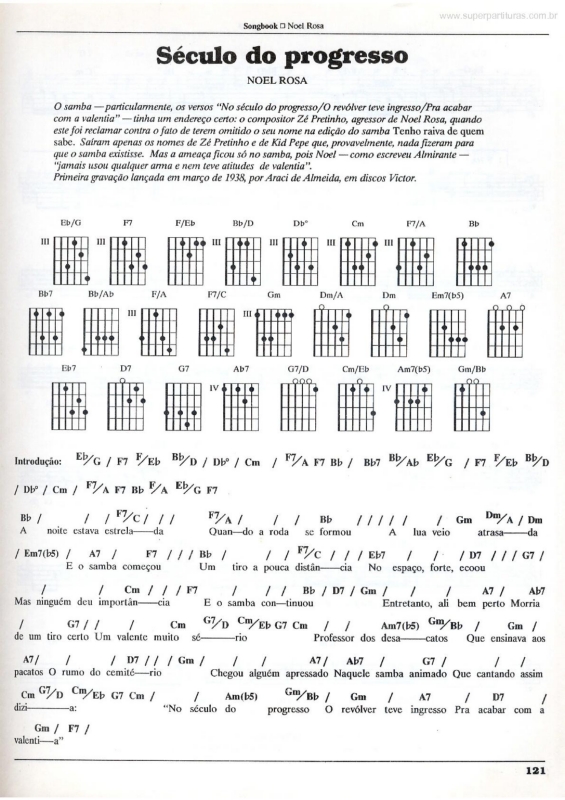 www.superpartituras.com.br
Songbook □ Noel Rosa
Século do progresso
NOEL ROSA
O samba — particularmente, os versos “No século do progresso/O revólver teve ingresso/Pra acabar
com a valentia” — tinha um endereço certo: o compositor Zé Pretinho, agressor de Noel Rosa, quando
este foi reclamar contra o fato de terem omitido o seu nome na edição do samba Tenho raiva de quem
sabe. Saíram apenas os nomes de Zé Pretinho e de Kid Pepe que, provavelmente, nada fizeram para
que o samba existisse. Mas a ameaça ficou só no samba, pois Noel — como escreveu Almirante —
“jamais usou qualquer arma e nem teve atitudes de valentia”.
Primeira gravação lançada em março de 1938, por Araci de Almeida, em discos Victor.
Eb/G F7 F/Eb Bb/D Db° Cm F7/A Bb
III III III III III
Bb7 Bb/Ab F/A F7/C Gm Dm/A Dm Em7(b5) A7
III III
Eb7 D7 G7 Ab7 G7/D Cm/Eb Am7(b5) Gm/Bb
IV IV
Introdução: Eb/G / F7 F/Eb Bb/D / Db° / Cm / F7/A F7 Bb / Bb7 Bb/Ab Eb/G / F7 F/Eb Bb/D
/ Db° / Cm / F7/A F7 Bb F/A Eb/G F7
Bb / / / F7/C / / / F7/A / / / Bb / / / / / / Gm Dm/A / Dm
A noite estava estrela—da Quan—do a roda se formou A lua veio atrasa—da
/ Em7(b5) / A7 / F7 / / / Bb / / / F7/C / / / Eb7 / / / D7 / / / G7 /
E o samba começou Um tiro a pouca distân—cia No espaço, forte, ecoou
/ / Cm / / / F7 / / / Bb / D7 / Gm / / / A7 / Ab7
Mas ninguém deu importân—cia E o samba con-tinuou Entretanto, ali bem perto Morria
/ G7 / / / Cm G7/D Cm/Eb G7 Cm / / Am7(b5) Gm/Bb / Gm /
de um tiro certo Um valente muito sé—rio Professor dos desa—catos Que ensinava aos
A7 / / / D7 / / / Gm / / / A7 / Ab7 / G7 / / /
pacatos O rumo do cemité—rio Chegou alguém apressado Naquele samba animado Que cantando assim
Cm G7/D Cm/Eb G7 Cm / / Am(b5) Gm/Bb / Gm / A7 / D7 /
dizi—a: “No século do progresso O revólver teve ingresso Pra acabar com a
Gm / F7 /
valenti—a”
121